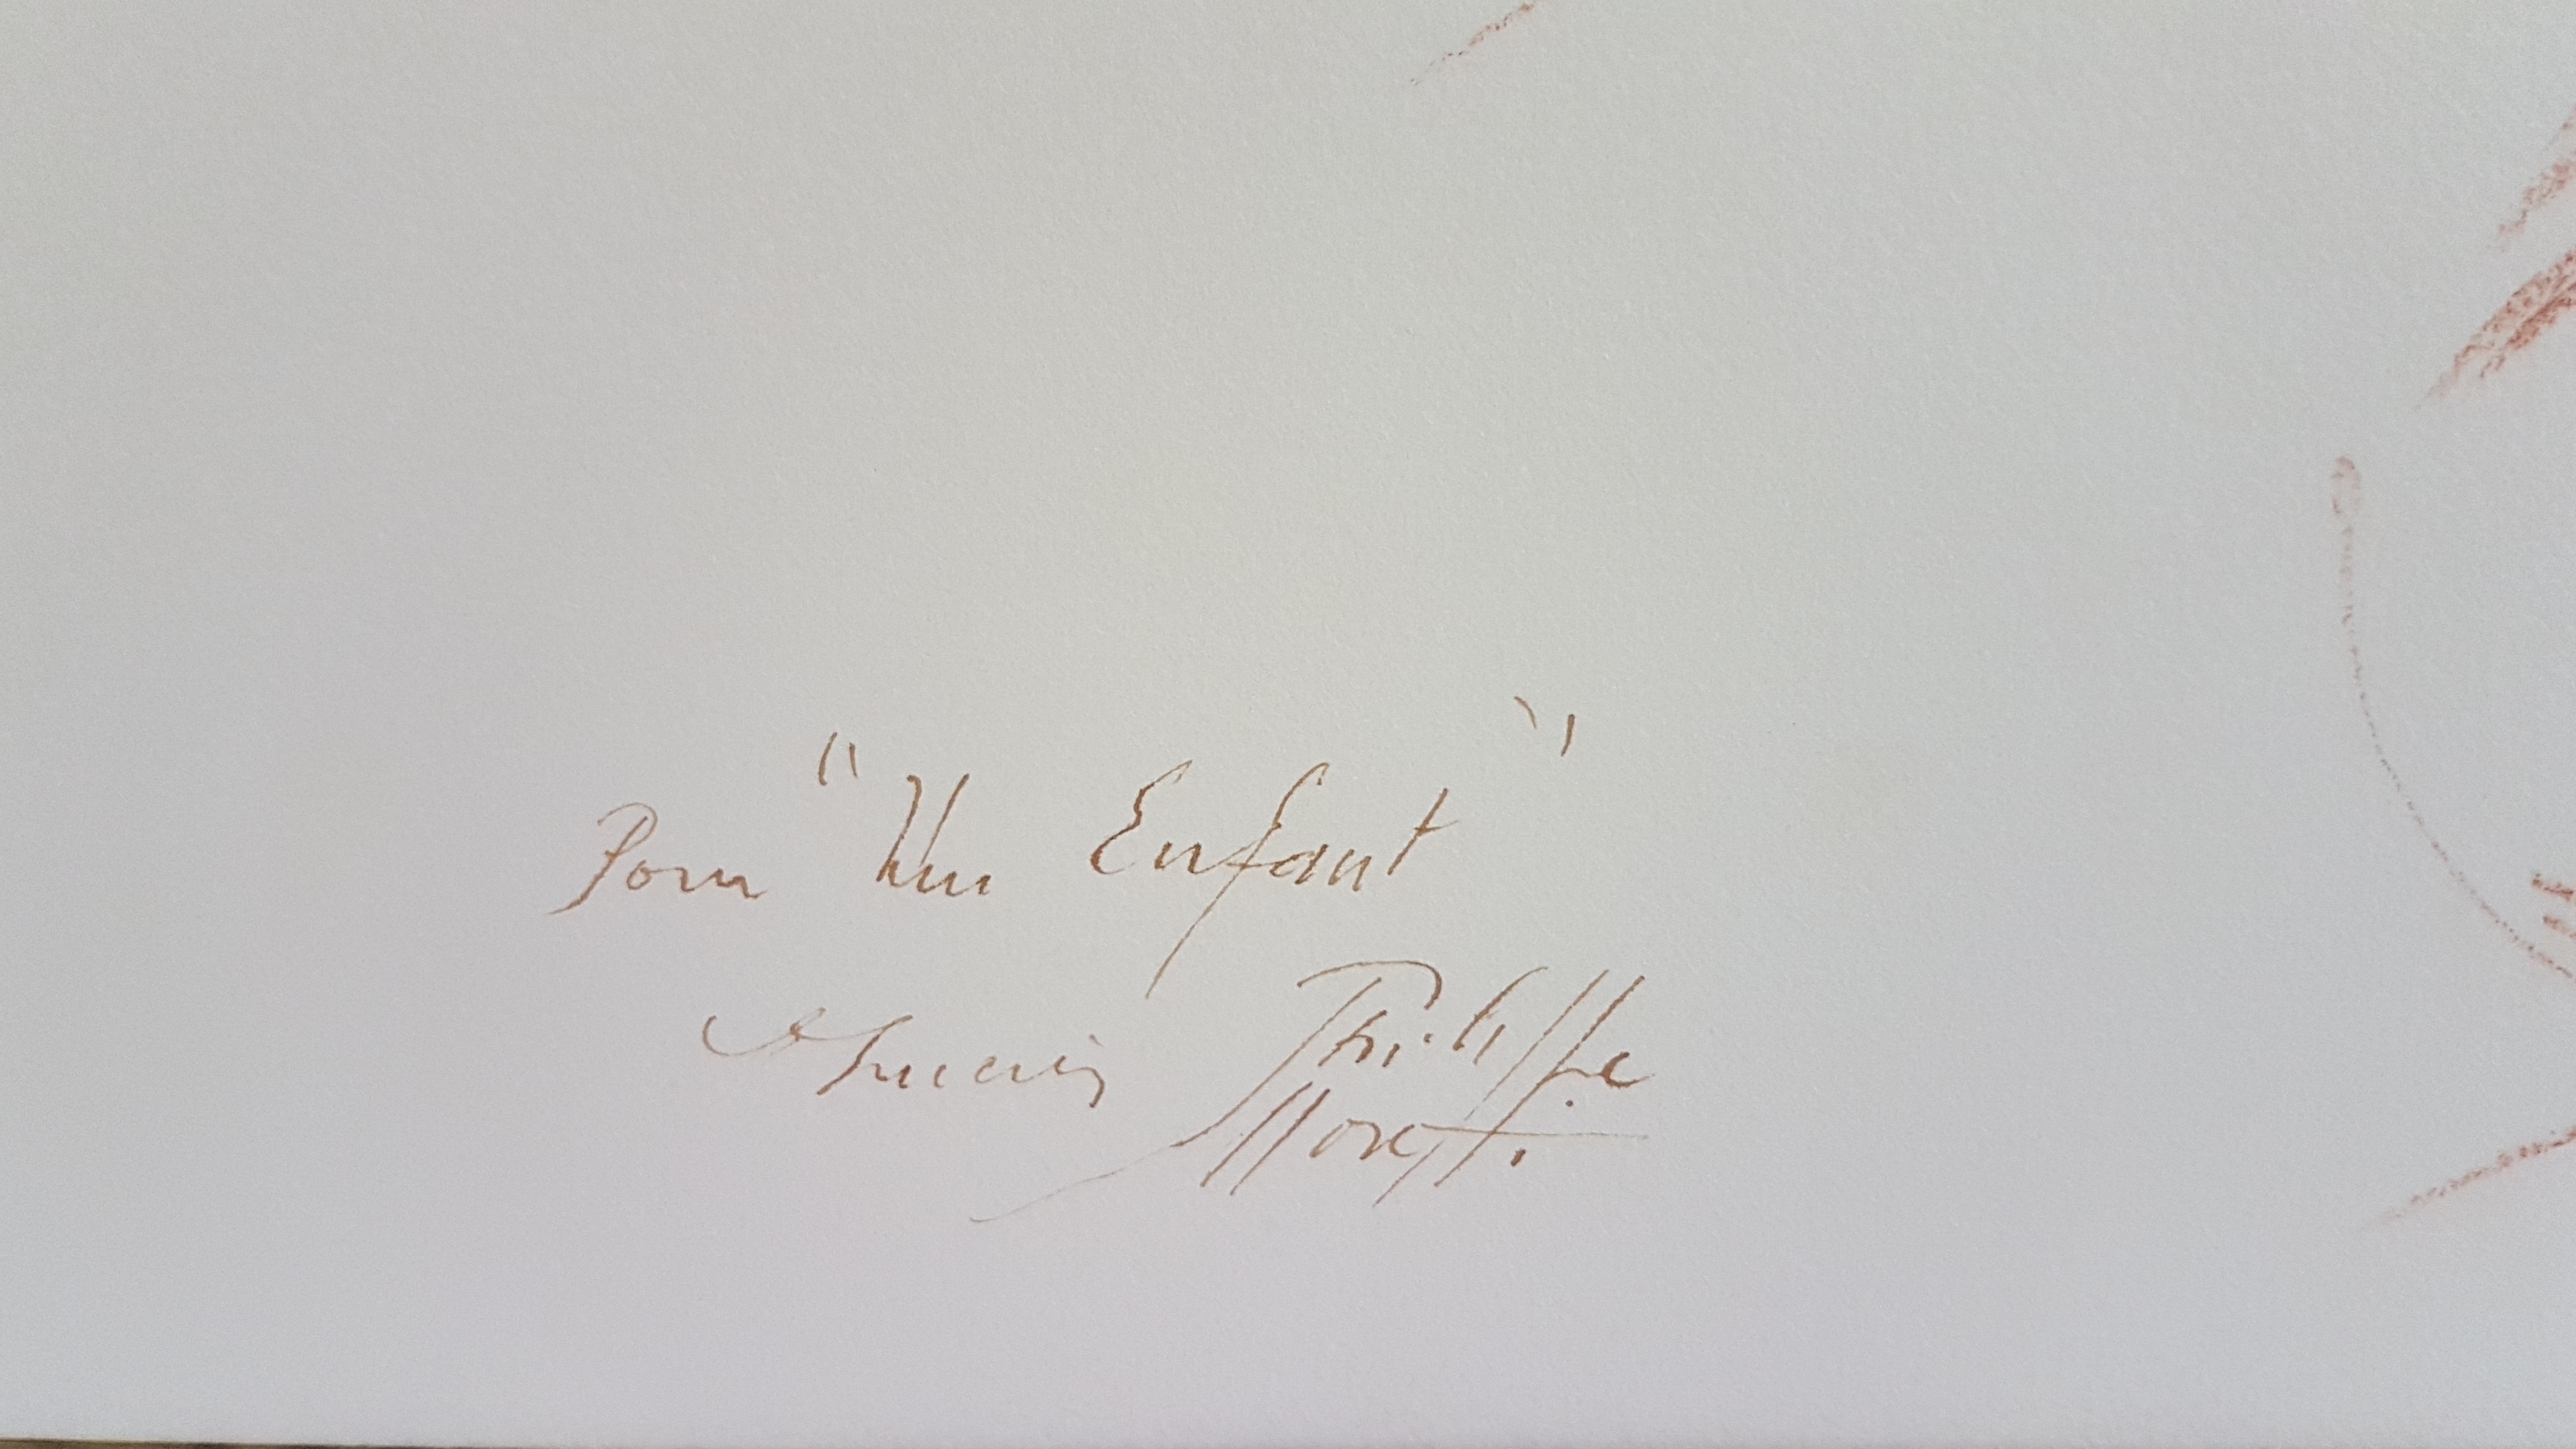 Pour "Un Enfant"
Philippe
Moretti